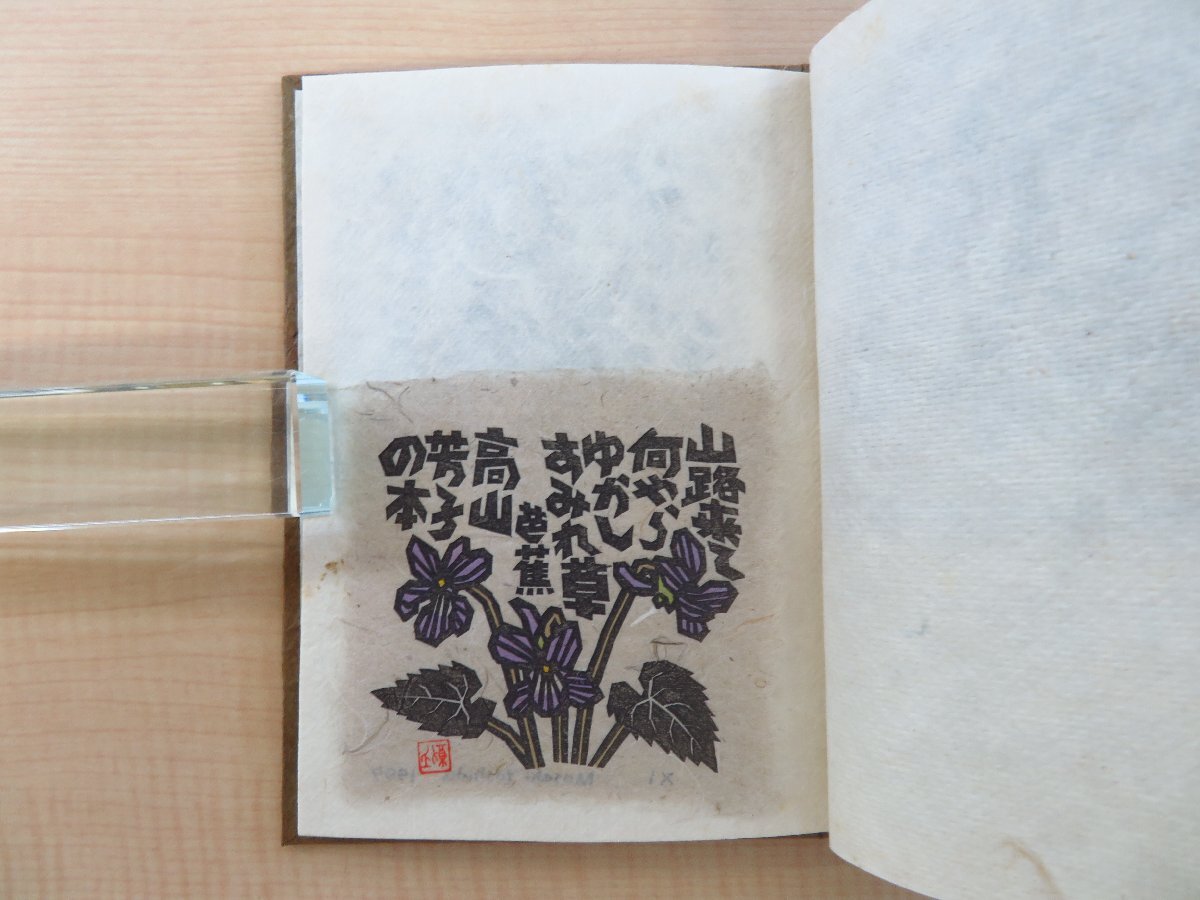 山路来て
何やら
ゆかし
すみれ草
芭蕉
高山
芳子
の本
XI
1987